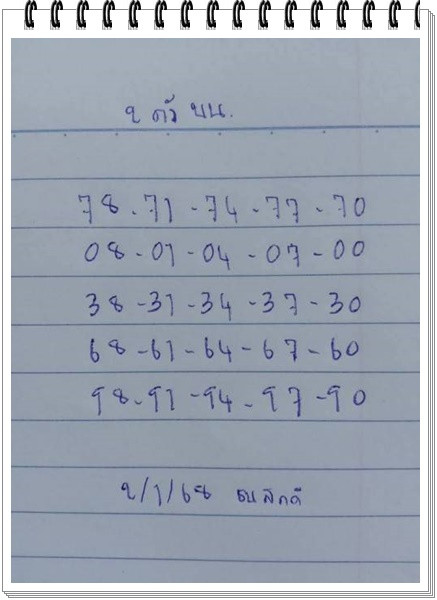 2 ตัว บน.
78-71-74-77-70
08-01-04-07-00
38-31-34-37-30
68-61-64-67-60
98-91-94-97-90
2/1/68